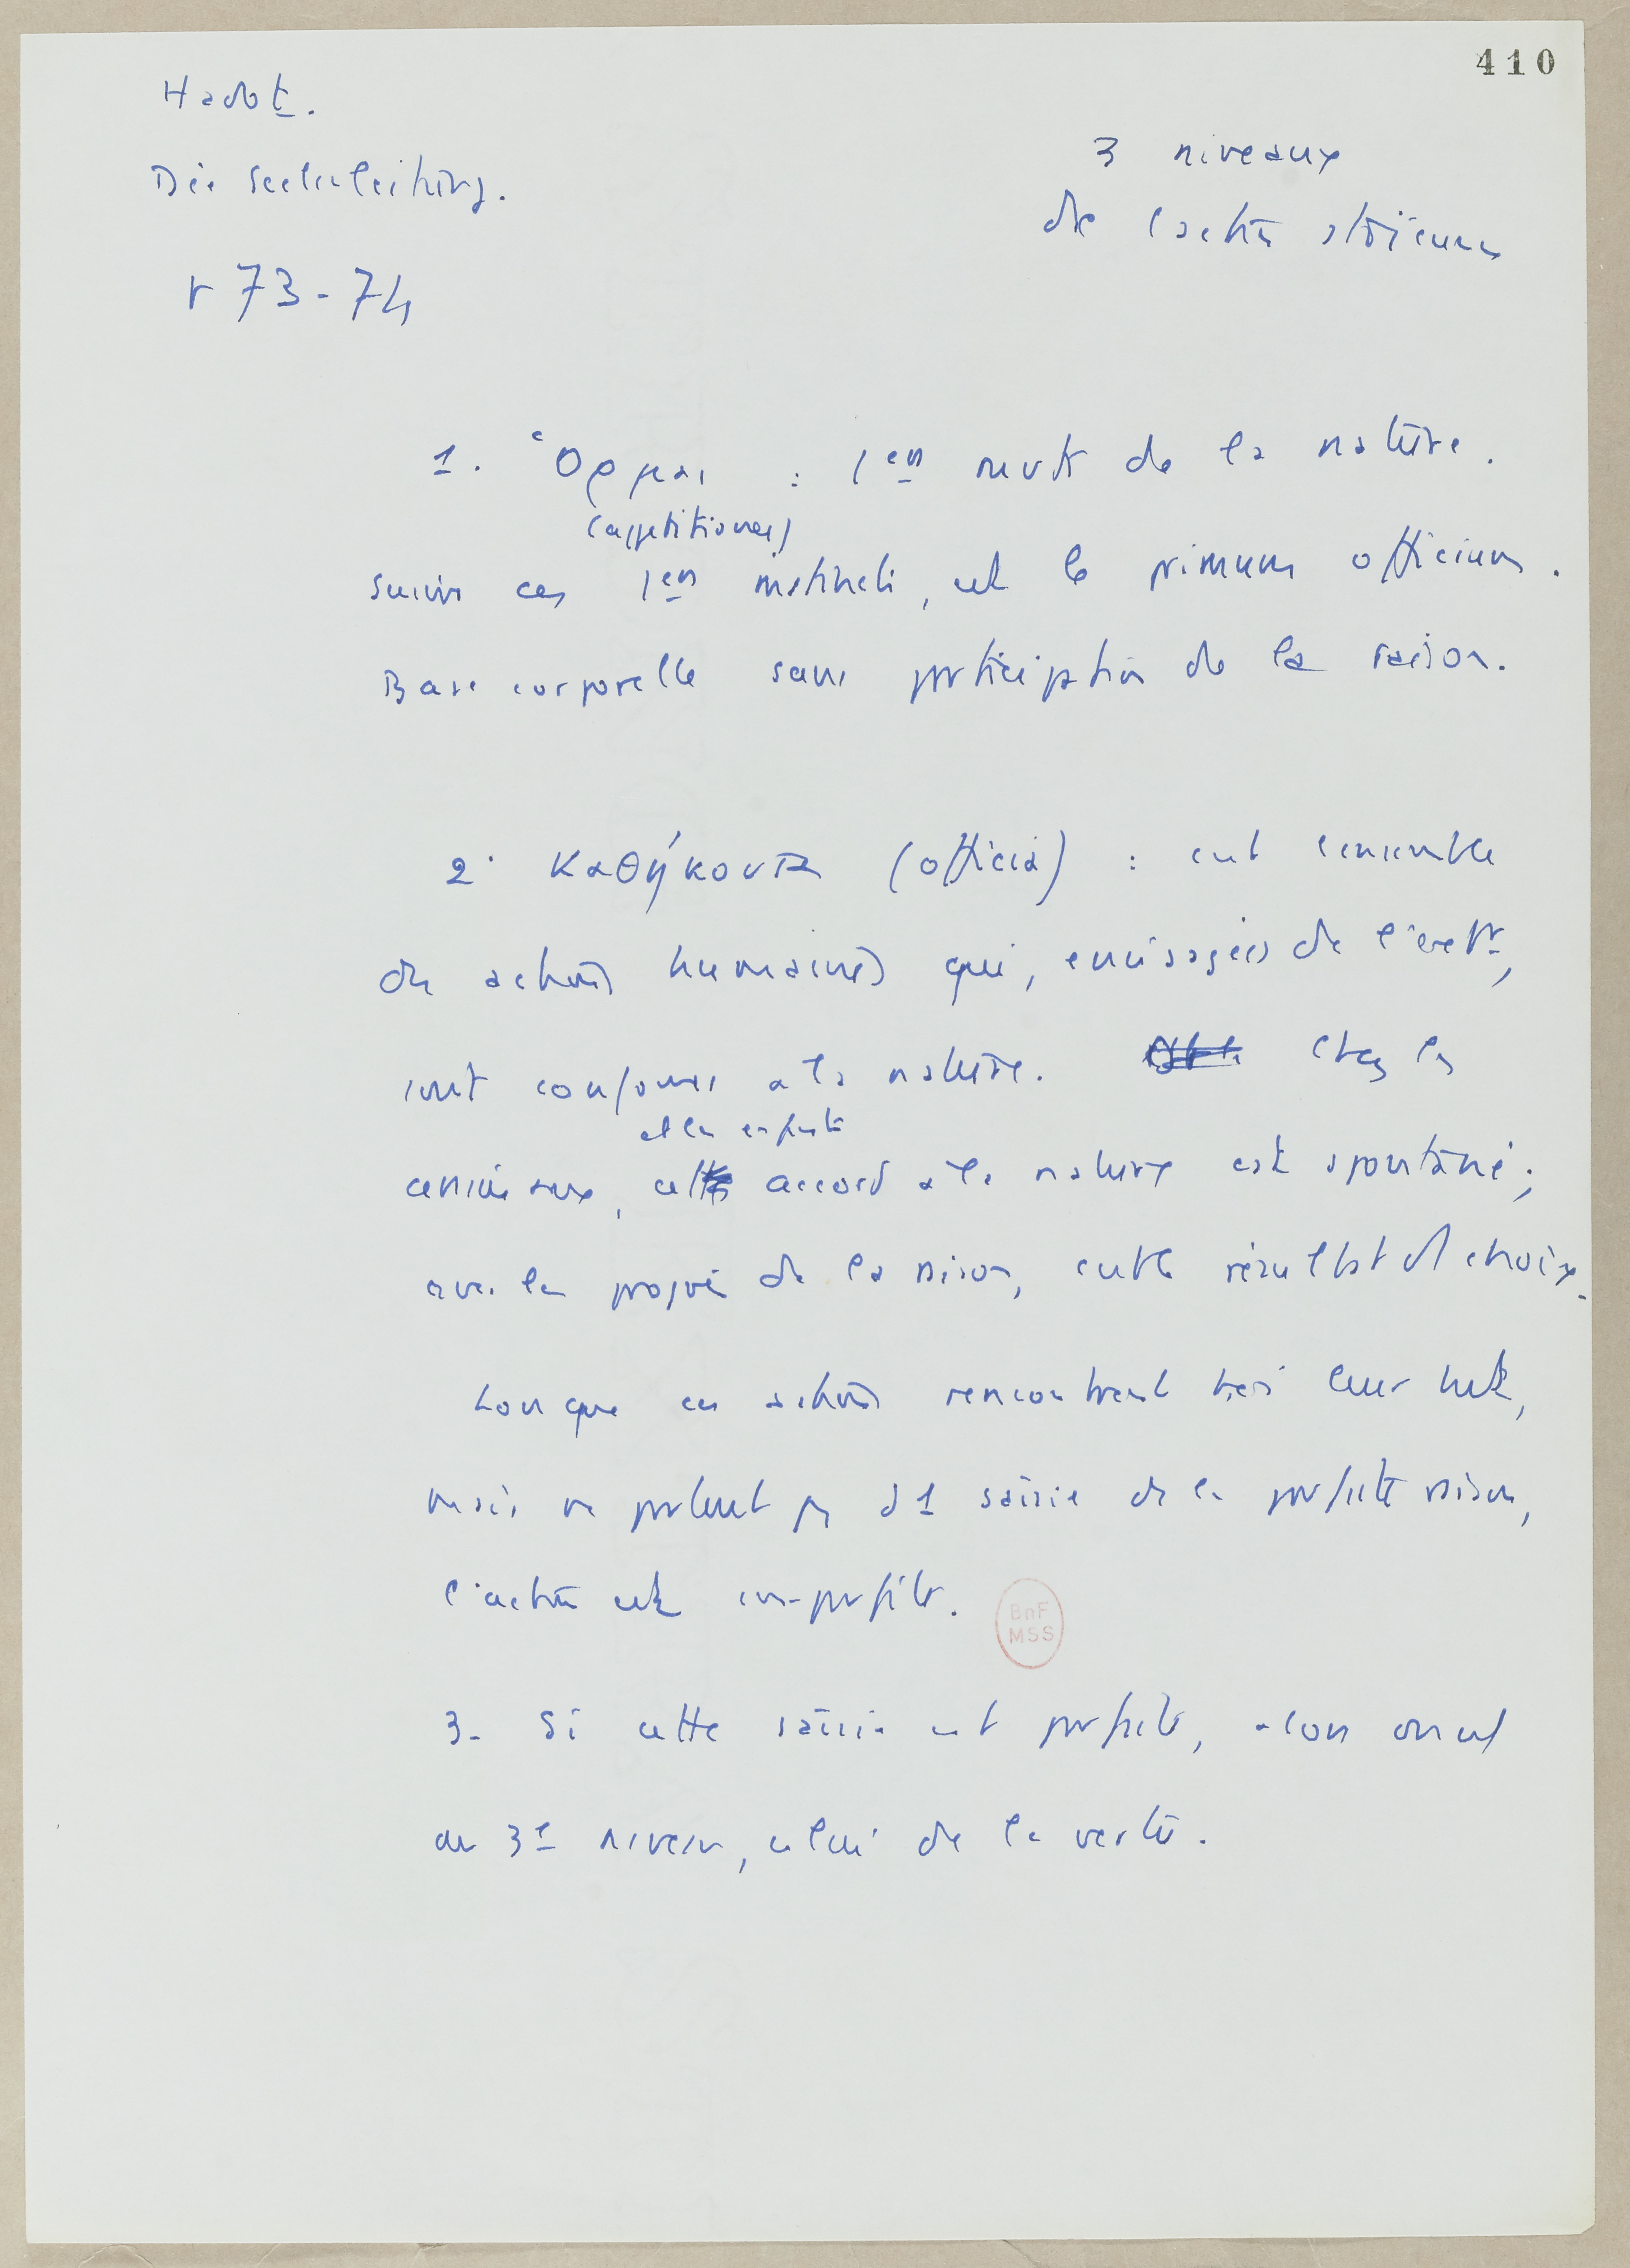 410
Hadot.
Die Seelenleitung.
p 73-74
3 niveaux
de l'action stoïcienne
1. Ὁρμαι : 1ers mvts de la nature.
(appetitiones)
Suivre ces 1ers instincts, est le primum officium.
Base corporelle sans participation de la raison.
2. Καθήκοντα (officia) : est l'ensemble
des actions humaines qui, envisagées de l'extr,
sont conformes a la nature. Chez les
et les enfants
animaux, cet accord a la nature est spontané ;
avec les progrès de la raison, est le résultat d choix.
Lorsque ces actions rencontrent bien leur but,
mais ne partent pas d'1 saisie de la parfaite raison,
l'action est im-parfaite.
BnF
MSS
3. Si cette saisie est parfaite, alors on est
au 3e niveau, celui de la vertu.